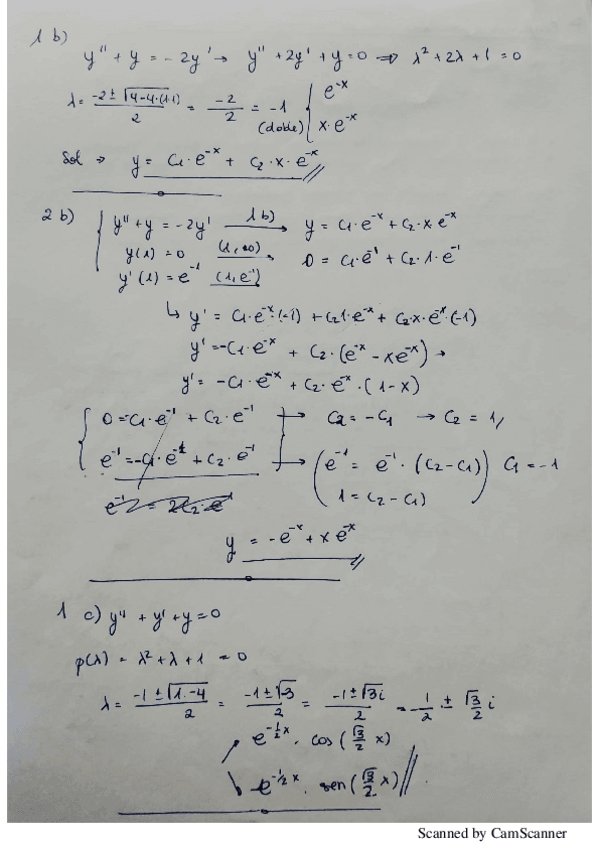 1 b)
y'' + y = -2y' → y'' + 2y' + y = 0 ⇒ λ² + 2λ + 1 = 0
λ = (-2 ± √(4-4·(1·1)))/2 = -2/2 = -1 (doble) { e^-x
x·e^-x
Sol → y = C1·e^-x + C2·x·e^-x //
2 b) { y'' + y = -2y' 1b) → y = C1·e^-x + C2·x·e^-x
y(1) = 0 (1,0) → 0 = C1·e^-1 + C2·1·e^-1
y'(1) = e^-1 (1,e^-1)
↳ y' = C1·e^-x·(-1) + C2·1·e^-x + C2·x·e^-x·(-1)
y' = -C1·e^-x + C2·(e^-x - xe^-x) →
y' = -C1·e^-x + C2·e^-x·(1-x)
{ 0 = C1·e^-1 + C2·e^-1 } → C2 = -C1 → C2 = 1/
e^-1 = -C1·e^-1 + C2·e^-1 → ( e^-1 = e^-1·(C2-C1) ) C1 = -1
1 = C2 - C1
y = -e^-x + x e^-x //
1 c) y'' + y' + y = 0
p(λ) = λ² + λ + 1 = 0
λ = (-1 ± √(1-4))/2 = (-1 ± √-3)/2 = (-1 ± √3 i)/2 = -1/2 ± √3/2 i
e^(-1/2 x) · cos(√3/2 x)
e^(-1/2 x) · sen(√3/2 x) //
Scanned by CamScanner